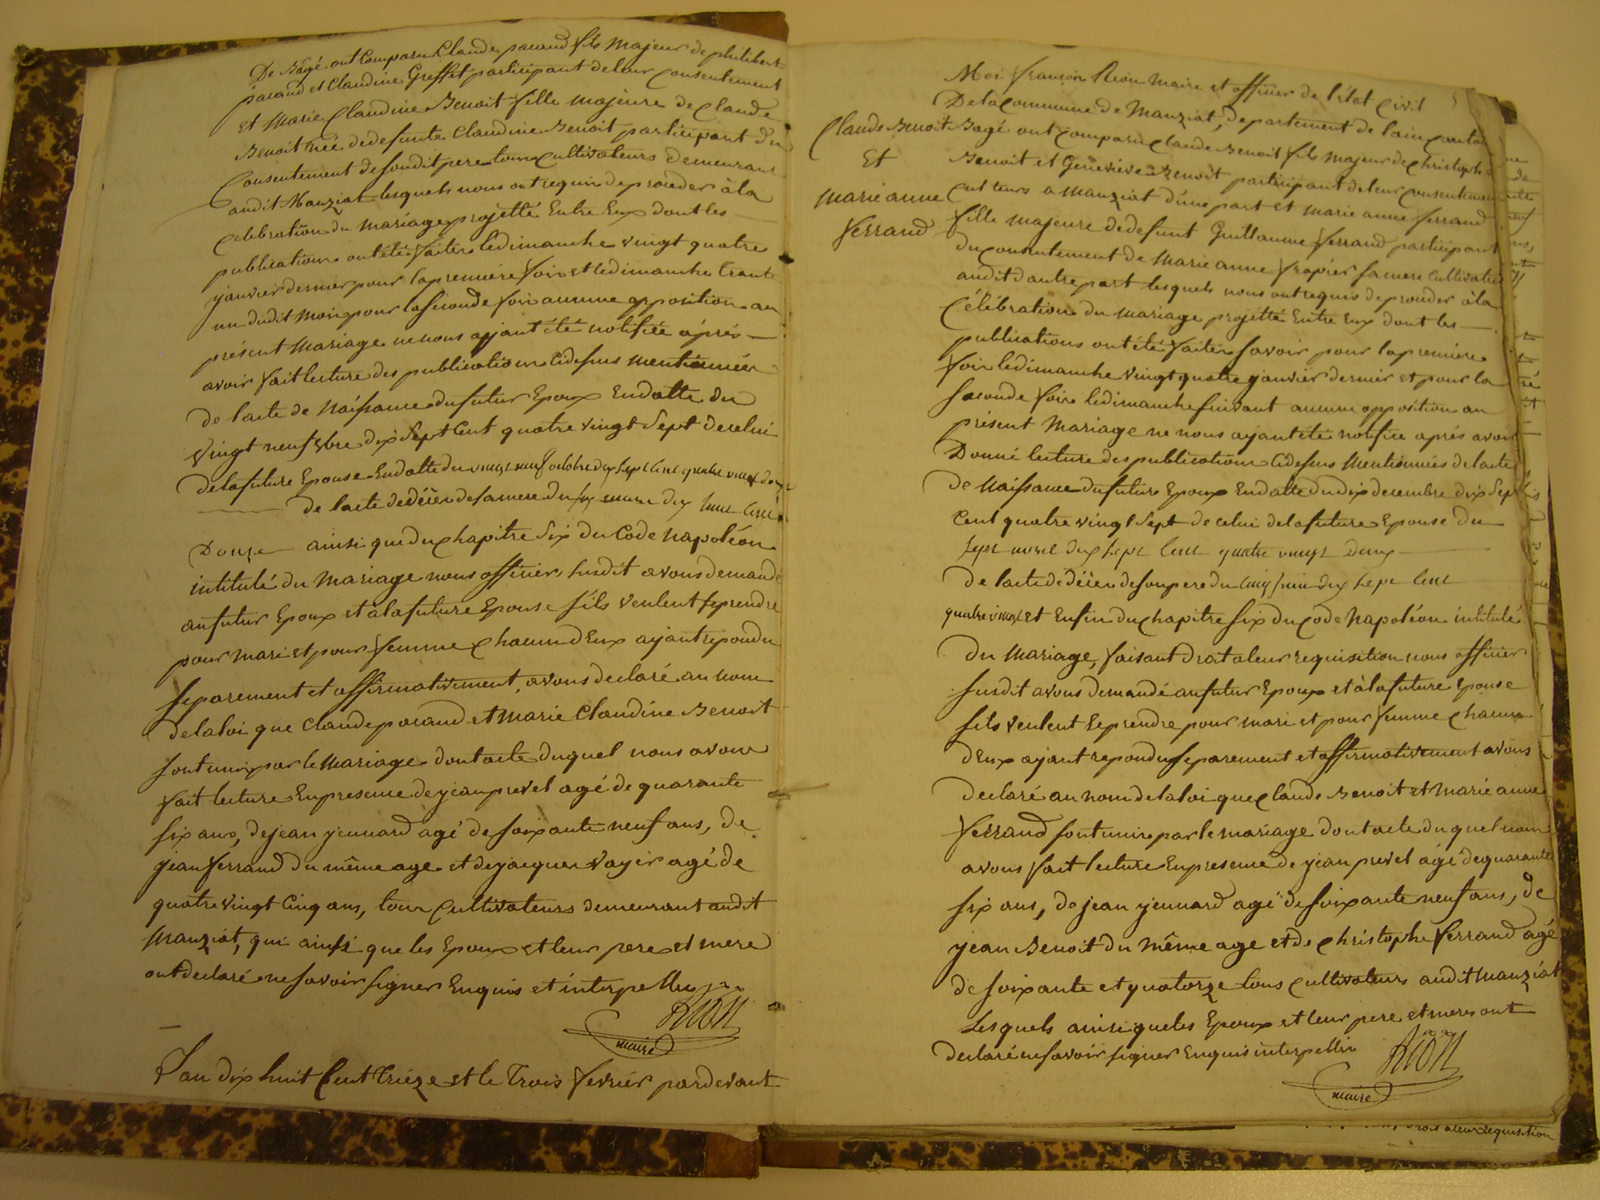 De Bagé ont Comparu Claude pacaud fils majeur de philibert
pacaud et Claudine Greffet participant de leur Consentement
Et Marie Claudine Benoit fille majeure de Claude
Benoit née de defunte Claudine Benoit participant du
Consentement de soudit pere tous cultivateurs demeurant
audit Manziat lesquels nous ont requis de proceder à la
Celebration du mariage projetté Entre Eux dont les
publications ont été faites le dimanche vingt quatre
janvier dernier pour la premiere fois et le dimanche trente
un dudit mois pour la seconde fois aucune opposition au
présent Mariage ne nous ayant été notifiée aprés
avoir fait lecture des publications cidessus mentionnées
de l'acte de Naissance du futur Epoux En datte du
vingt neuf xbre dix Sept Cent quatre vingt Sept de celui
de la future Epouse En datte du vingt neuf octobre dix sept cent quatre vingt douze
de l'acte de décès de sa mere du six mars dix huit cent
Douze ainsi que du chapitre Six du Code Napoléon
intitulé du Mariage nous officier susdit avons demandé
au futur Epoux et à la future Epouse s'ils veulent se prendre
pour mari et pour femme chacun d'Eux ayant repondu
separement et affirmativement, avons declaré au nom
de la loi que Claude pacaud et Marie Claudine Benoit
sont unis par le Mariage dont acte duquel nous avons
fait lecture En presence de jean prevel agé de quarante
six ans, de jean jeunard agé de soixante neuf ans, de
jean ferrand du même age et de jacques Voyir agé de
quatre vingt Cinq ans, tous Cultivateurs demeurant audit
Manziat, qui ainsi que les Epoux et leur pere et mere
ont declaré ne savoir signer Enquis et interpellés
Rion
maire
L'an dix huit Cent treize et le trois fevrier pardevant
Moi françois Rion Maire et officier de l'etat Civil
De la Commune de Manziat, departement de l'ain canton
Claude Benoit
Et
marie anne
ferrand
Bagé ont comparu claude Benoit fils majeur de christophe
Benoit et Genevieve Benoit participant de leur consentement
Cultteurs a Manziat d'une part et Marie anne ferrand
fille majeure de defunt Guillaume ferrand participant
du consentement de Marie anne frapier sa mere Cultivatrice
audit d'autre part lesquels nous ont requis de proceder à la
Célébration du Mariage projetté Entre Eux dont les
publications ont été faites savoir pour la premiere
fois le dimanche vingt quatre janvier dernier et pour la
seconde fois le dimanche suivant aucune opposition au
présent Mariage ne nous ayant été notifiée aprés avoir
Donné lecture des publications cidessus Mentionnées de l'acte
de Naissance du futur Epoux En datte du dix decembre dix Sept
Cent quatre vingt Sept de celui de la future Epouse du
Sept mars dix Sept Cent quatre vingt Deux
de l'acte de décès de son pere du cinq juin dix Sept Cent
quatre vingt et Enfin du chapitre six du code Napoléon intitulé
du Mariage, faisant droit a leur requisition nous officier
susdit avons demandé au futur Epoux et à la future Epouse
s'ils veulent se prendre pour mari et pour femme chacun
d'Eux ayant repondu separement et affirmativement avons
declaré au nom de la loi que claude Benoit et Marie anne
ferrand sont unis par le mariage dont acte duquel nous
avons fait lecture En presence de jean prevel agé de quarante
six ans, de jean jeunard agé de soixante neuf ans, de
jean Benoit du même age et de christophe ferrand agé
de soixante et quatorze tous cultivateurs audit Manziat
Lesquels ainsi que les Epoux et leur pere et meres ont
declaré ne savoir signer Enquis interpellés
Rion
maire
droit a leur requisition